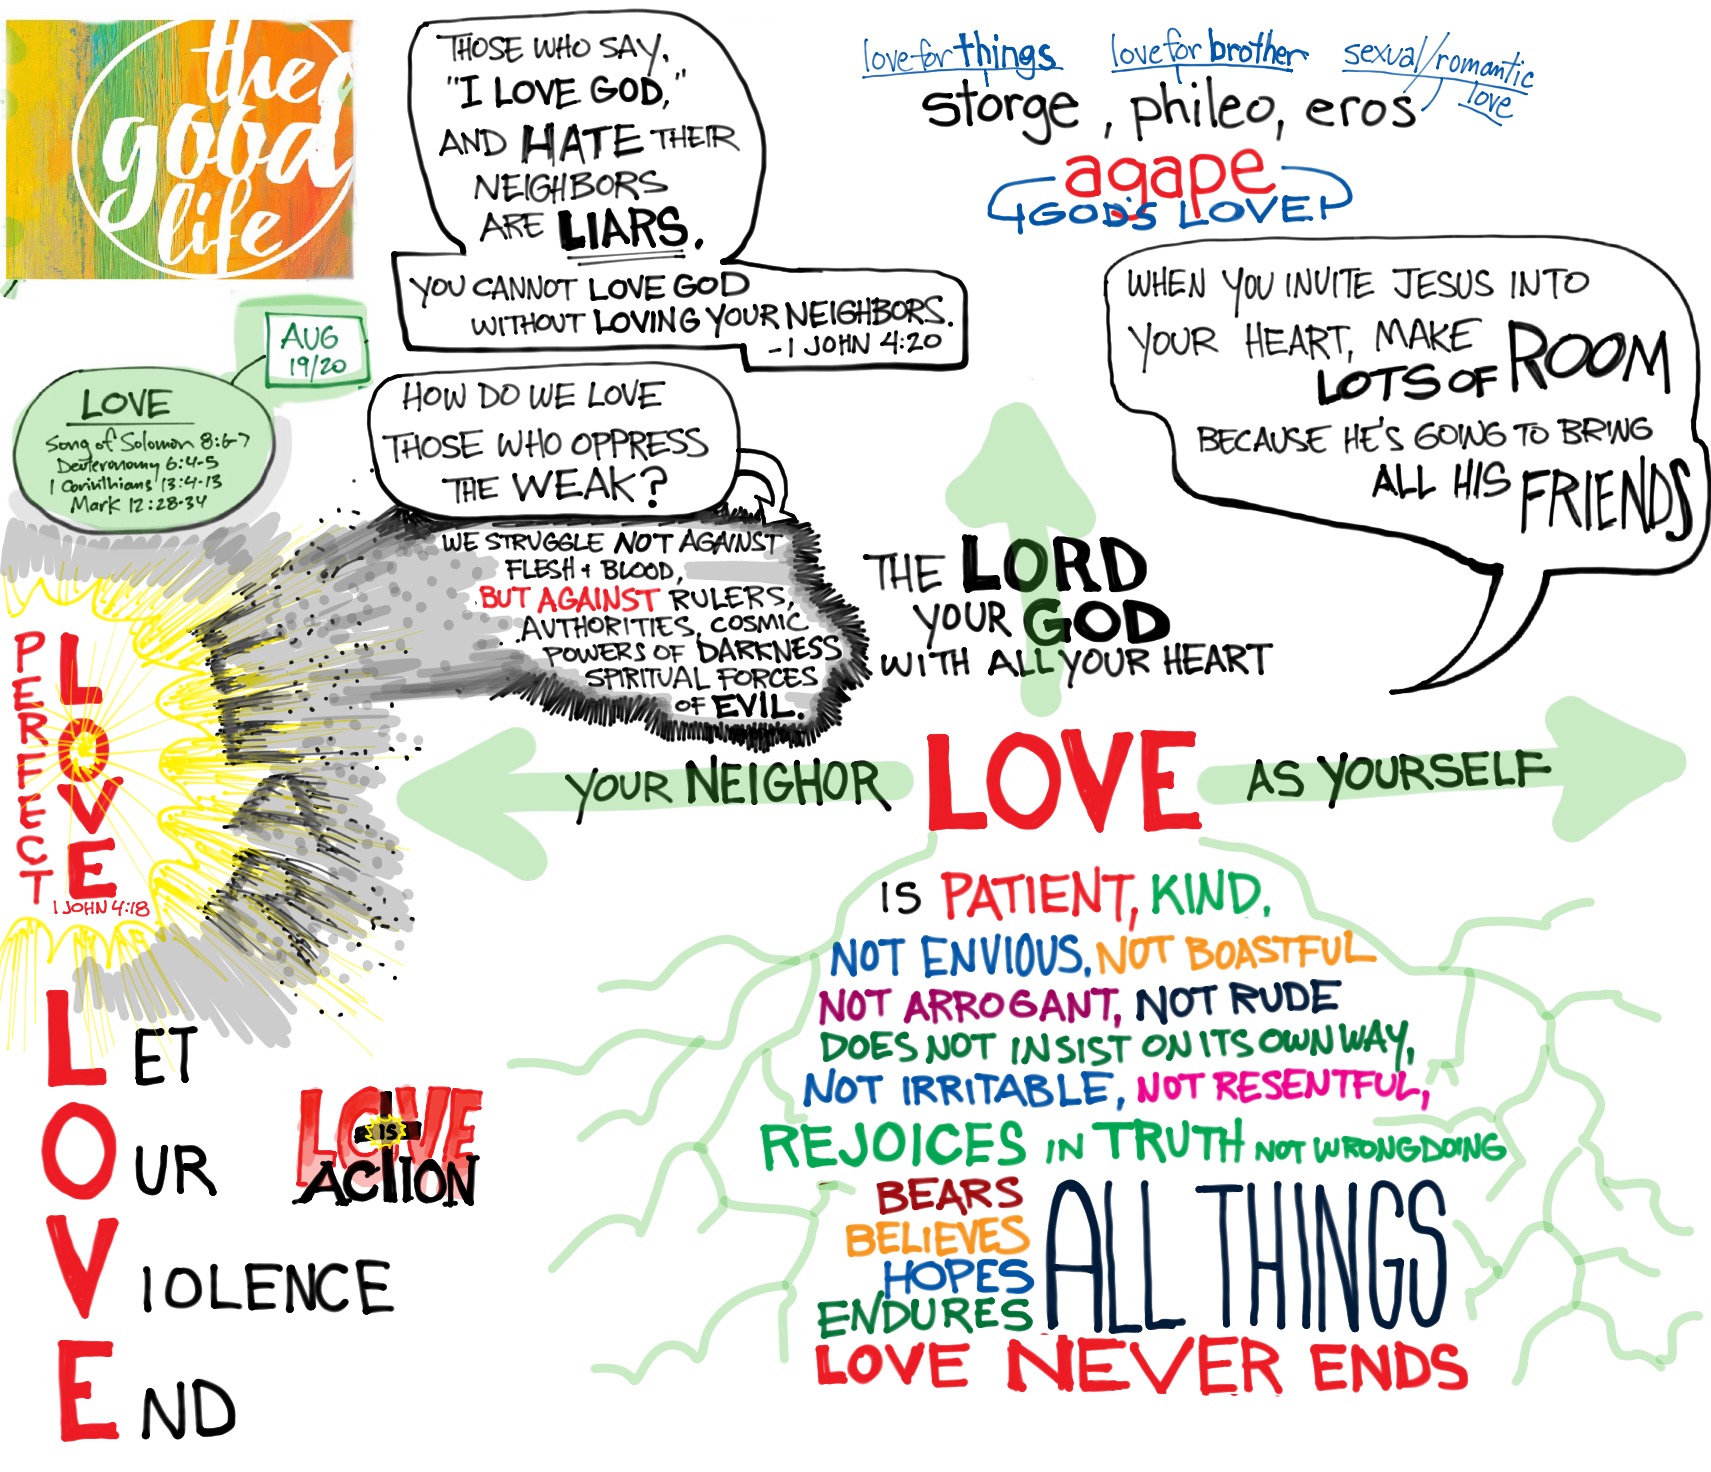 the
good
life
THOSE WHO SAY,
"I LOVE GOD,"
AND HATE THEIR
NEIGHBORS
ARE LIARS.
YOU CANNOT LOVE GOD
WITHOUT LOVING YOUR NEIGHBORS.
-1 JOHN 4:20
love for things
love for brother
sexual/romantic
love
storge, phileo, eros
agape
GOD'S LOVE
WHEN YOU INVITE JESUS INTO
YOUR HEART, MAKE
LOTS OF ROOM
BECAUSE HE'S GOING TO BRING
ALL HIS FRIENDS
AUG
19/20
LOVE
Song of Solomon 8:6-7
Deuteronomy 6:4-5
1 Corinthians 13:4-13
Mark 12:28-34
HOW DO WE LOVE
THOSE WHO OPPRESS
THE WEAK?
WE STRUGGLE NOT AGAINST
FLESH + BLOOD,
BUT AGAINST RULERS,
AUTHORITIES, COSMIC
POWERS OF DARKNESS
SPIRITUAL FORCES
OF EVIL.
PERFECT
LOVE
1 JOHN 4:18
THE LORD
YOUR GOD
WITH ALL YOUR HEART
YOUR NEIGHOR LOVE AS YOURSELF
IS PATIENT, KIND,
NOT ENVIOUS, NOT BOASTFUL
NOT ARROGANT, NOT RUDE
DOES NOT INSIST ON ITS OWN WAY,
NOT IRRITABLE, NOT RESENTFUL,
REJOICES IN TRUTH NOT WRONGDOING
BEARS
BELIEVES
HOPES
ENDURES
ALL THINGS
LOVE NEVER ENDS
LET
OUR
VIOLENCE
END
LOVE
IS
ACTION